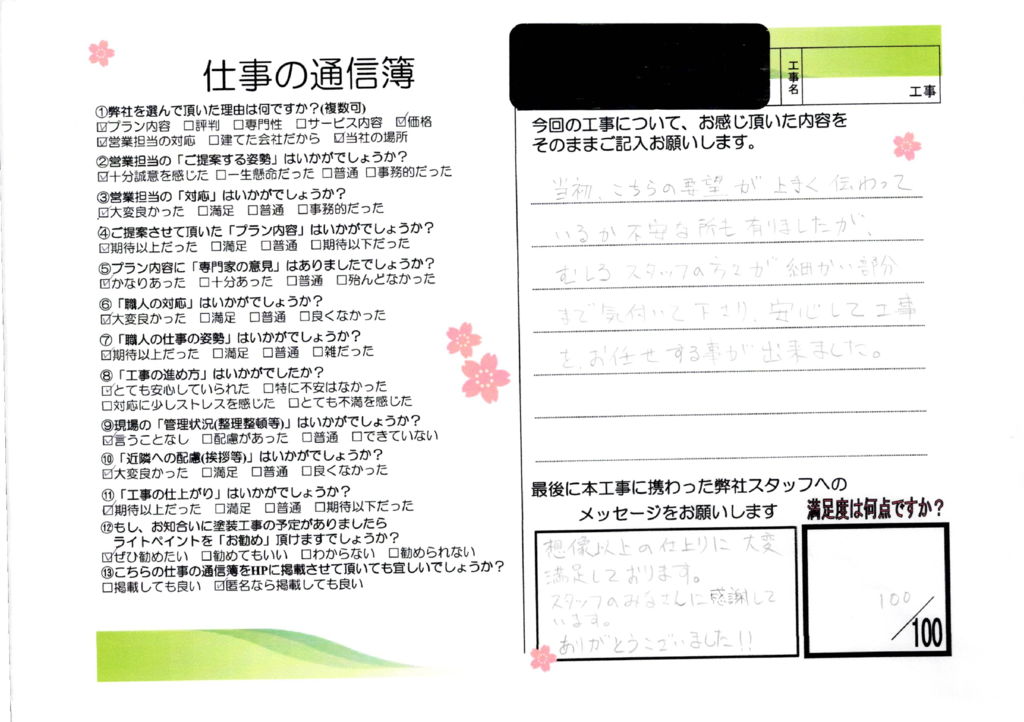 仕事の通信簿
①弊社を選んで頂いた理由は何ですか?(複数可)
☑プラン内容 ☐評判 ☐専門性 ☐サービス内容 ☑価格
☑営業担当の対応 ☐建てた会社だから ☑当社の場所
②営業担当の「ご提案する姿勢」はいかがでしょうか?
☑十分誠意を感じた ☐一生懸命だった ☐普通 ☐事務的だった
③営業担当の「対応」はいかがでしょうか?
☑大変良かった ☐満足 ☐普通 ☐事務的だった
④ご提案させて頂いた「プラン内容」はいかがでしょうか?
☑期待以上だった ☐満足 ☐普通 ☐期待以下だった
⑤プラン内容に「専門家の意見」はありましたでしょうか?
☑かなりあった ☐十分あった ☐普通 ☐殆んどなかった
⑥「職人の対応」はいかがでしょうか?
☑大変良かった ☐満足 ☐普通 ☐良くなかった
⑦「職人の仕事の姿勢」はいかがでしょうか?
☑期待以上だった ☐満足 ☐普通 ☐雑だった
⑧「工事の進め方」はいかがでしたか?
☑とても安心していられた ☐特に不安はなかった
☐対応に少しストレスを感じた ☐とても不満を感じた
⑨現場の「管理状況(整理整頓等)」はいかがでしょうか?
☑言うことなし ☐配慮があった ☐普通 ☐できていない
⑩「近隣への配慮(挨拶等)」はいかがでしょうか?
☑大変良かった ☐満足 ☐普通 ☐良くなかった
⑪「工事の仕上がり」はいかがでしょうか?
☑期待以上だった ☐満足 ☐普通 ☐期待以下だった
⑫もし、お知合いに塗装工事の予定がありましたら
ライトペイントを「お勧め」頂けますでしょうか?
☑ぜひ勧めたい ☐勧めてもいい ☐わからない ☐勧められない
⑬こちらの仕事の通信簿をHPに掲載させて頂いても宜しいでしょうか?
☐掲載しても良い ☑匿名なら掲載しても良い
工事名
工事
今回の工事について、お感じ頂いた内容を
そのままご記入お願いします。
当初、こちらの要望が上手く伝わって
いるか不安な所も有りましたが、
むしろスタッフの方々が細かい部分
まで気付いて下さり、安心して工事
を、お任せする事が出来ました。
最後に本工事に携わった弊社スタッフへの
メッセージをお願いします
想像以上の仕上りに大変
満足しております。
スタッフのみなさんに感謝して
います。
ありがとうございました!!
満足度は何点ですか?
100/100